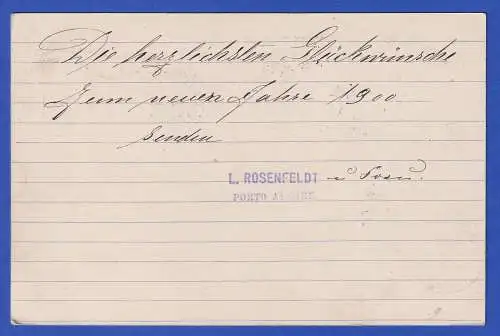 Die herzlichsten Glückwünsche
Zum neuen Jahre 1900
senden
L. ROSENFELDT u Frau.
PORTO ALEGRE